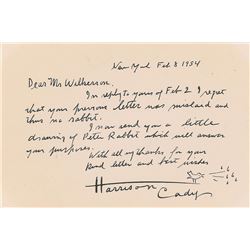 New York Feb 8 1954
Dear Mr Wilkerson.
In reply to yours of Feb 2 I regret
that your previous letter was mislaid and
thus no rabbit.
I now send you a little
drawing of Peter Rabbit which will answer
your purposes.
With all my thanks for your
kind letter and best wishes
Harrison
Cady